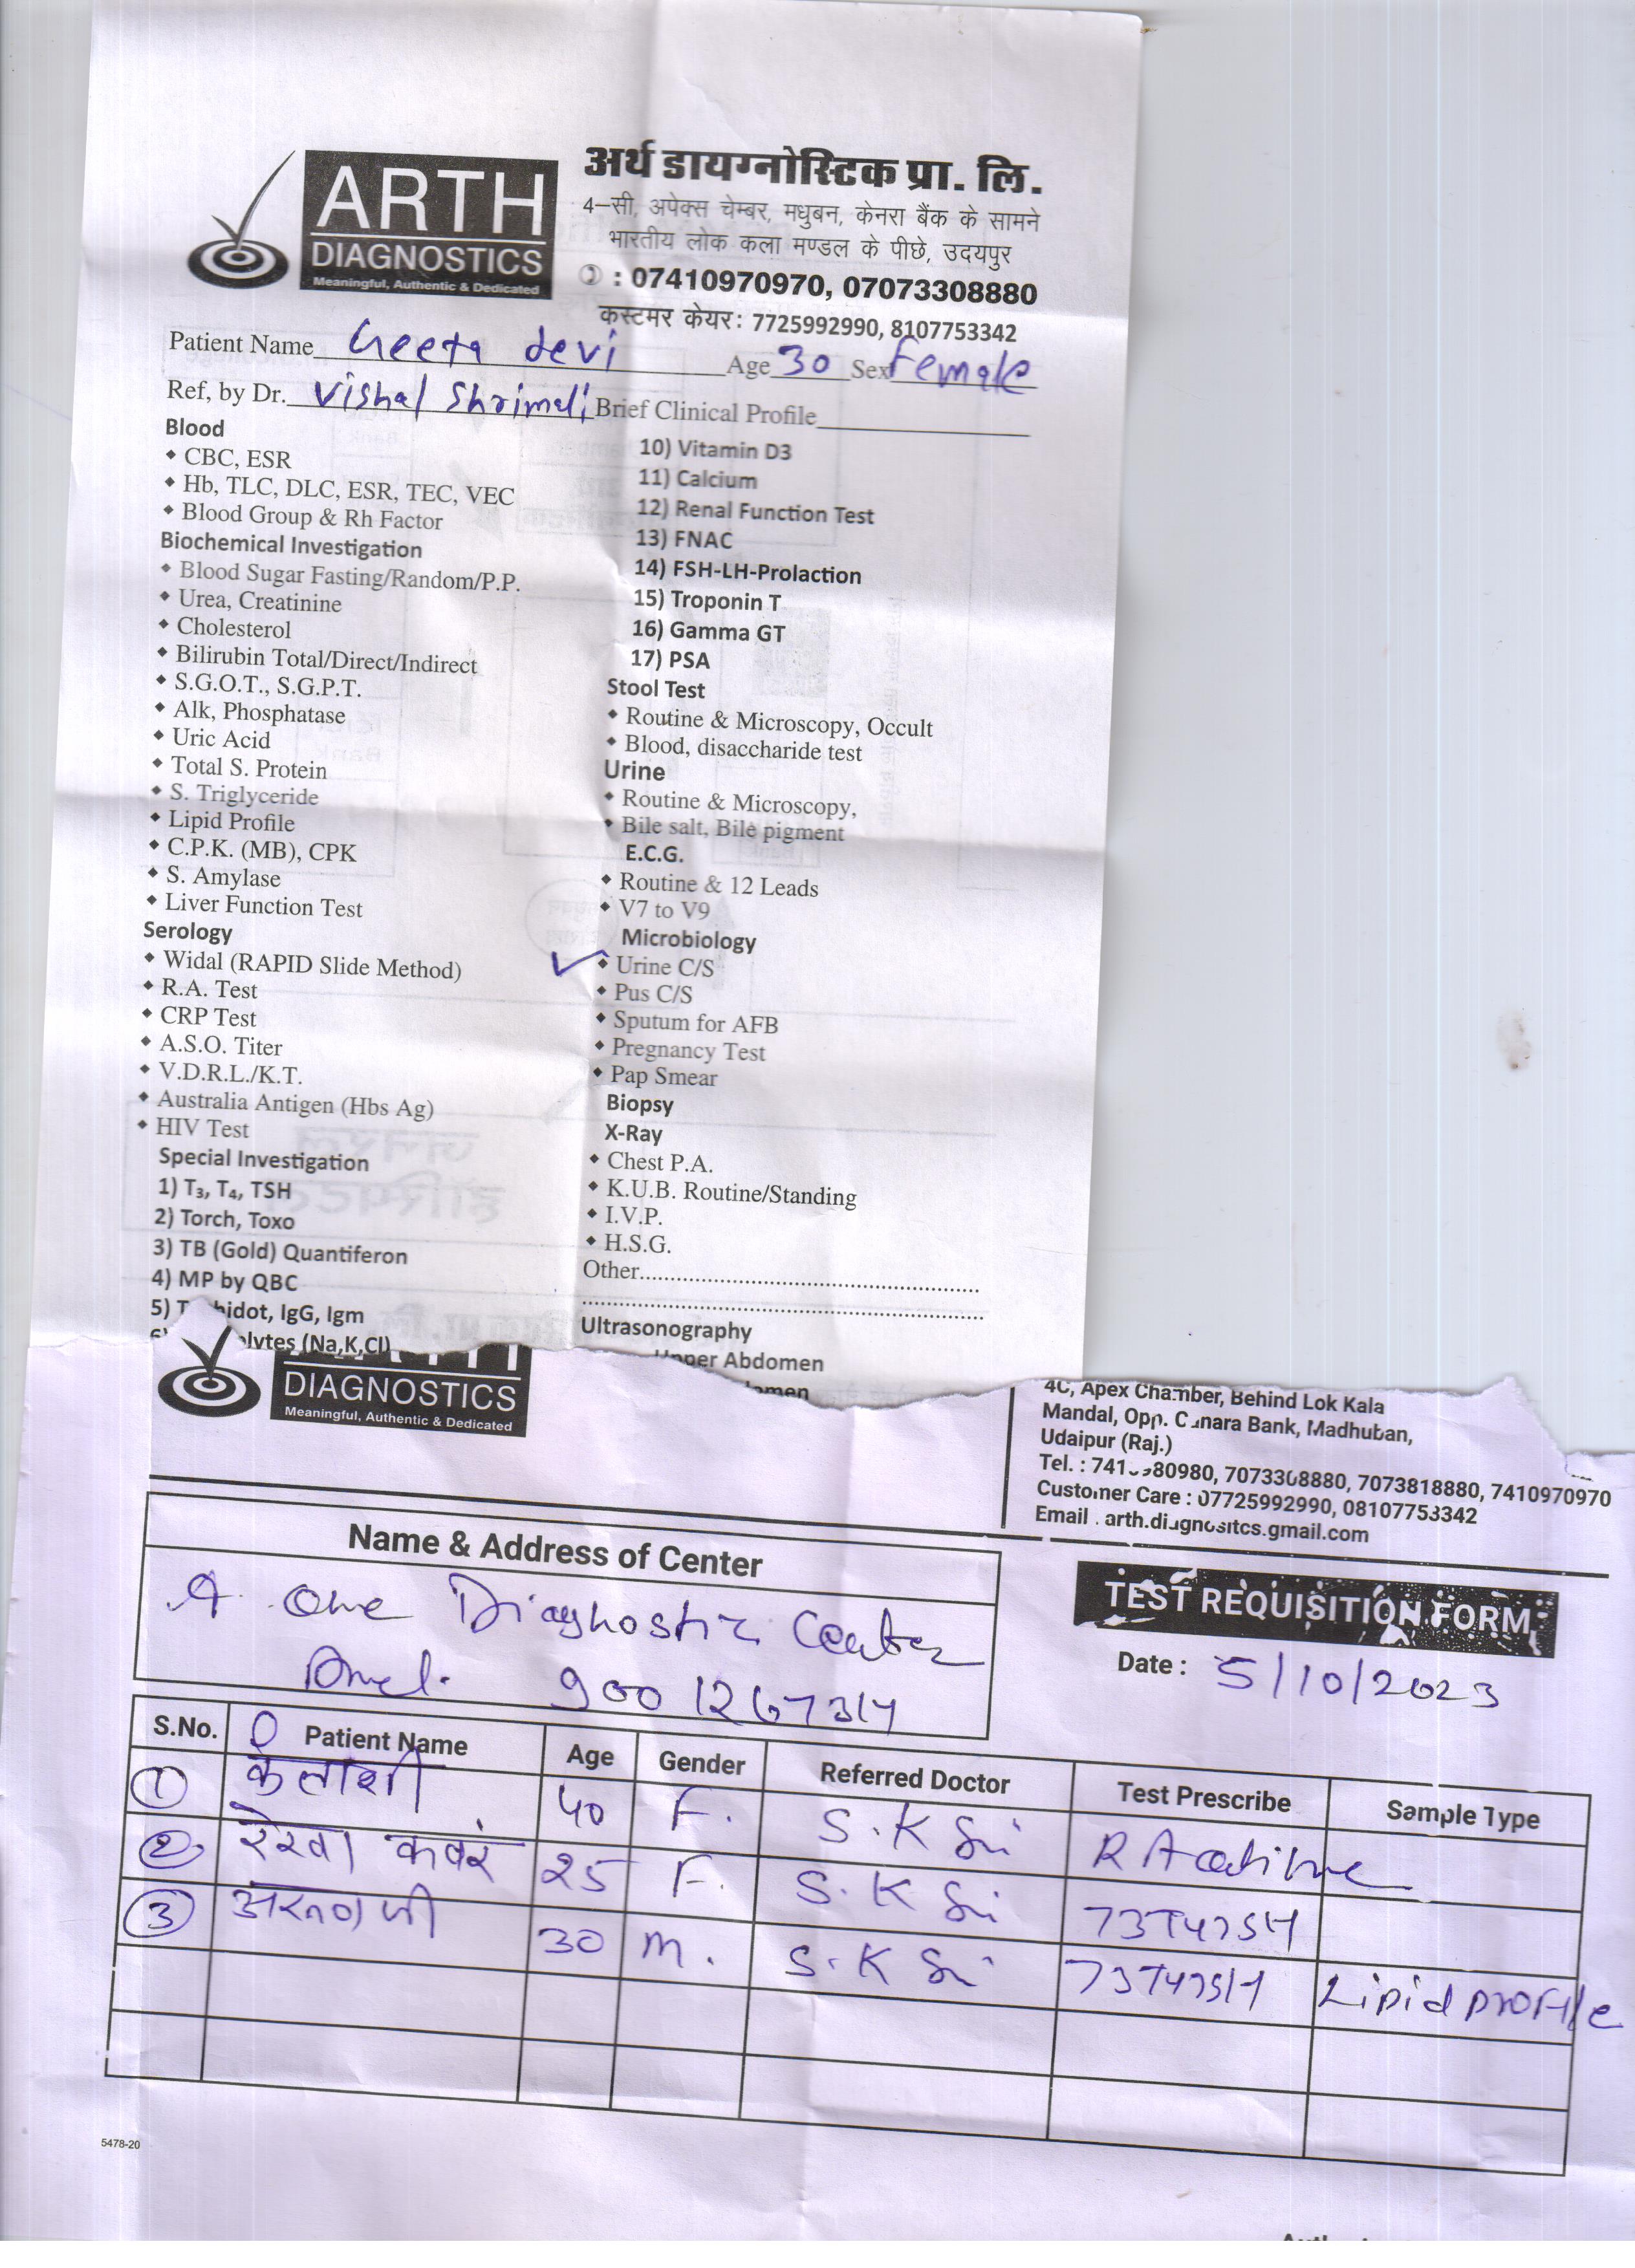 ARTH
DIAGNOSTICS
Meaningful, Authentic & Dedicated
अर्थ डायग्नोस्टिक प्रा. लि.
4–सी, अपेक्स चेम्बर, मधुबन, केनरा बैंक के सामने
भारतीय लोक कला मण्डल के पीछे, उदयपुर
: 07410970970, 07073308880
कस्टमर केयर: 7725992990, 8107753342
Patient Name Geeta devi Age 30 Sex Female
Ref, by Dr. Vishal Shrimali Brief Clinical Profile
Blood
CBC, ESR
Hb, TLC, DLC, ESR, TEC, VEC
Blood Group & Rh Factor
Biochemical Investigation
Blood Sugar Fasting/Random/P.P.
Urea, Creatinine
Cholesterol
Bilirubin Total/Direct/Indirect
S.G.O.T., S.G.P.T.
Alk, Phosphatase
Uric Acid
Total S. Protein
S. Triglyceride
Lipid Profile
C.P.K. (MB), CPK
S. Amylase
Liver Function Test
Serology
Widal (RAPID Slide Method)
R.A. Test
CRP Test
A.S.O. Titer
V.D.R.L./K.T.
Australia Antigen (Hbs Ag)
HIV Test
Special Investigation
1) T3, T4, TSH
2) Torch, Toxo
3) TB (Gold) Quantiferon
4) MP by QBC
5) hidot, IgG, Igm
(Na,K,Cl)
10) Vitamin D3
11) Calcium
12) Renal Function Test
13) FNAC
14) FSH-LH-Prolaction
15) Troponin T
16) Gamma GT
17) PSA
Stool Test
Routine & Microscopy, Occult
Blood, disaccharide test
Urine
Routine & Microscopy,
Bile salt, Bile pigment
E.C.G.
Routine & 12 Leads
V7 to V9
Microbiology
✓ Urine C/S
Pus C/S
Sputum for AFB
Pregnancy Test
Pap Smear
Biopsy
X-Ray
Chest P.A.
K.U.B. Routine/Standing
I.V.P.
H.S.G.
Other
Ultrasonography
Upper Abdomen
DIAGNOSTICS
Meaningful, Authentic & Dedicated
4C, Apex Chamber, Behind Lok Kala
Mandal, Opp. Canara Bank, Madhuban,
Udaipur (Raj.)
Tel. : 7073308880, 7073818880, 7410970970
Customer Care : 07725992990, 08107753342
Email arth.diagnositcs.gmail.com
Name & Address of Center
A One Diagnostic Center
9001267314
TEST REQUISITION FORM
Date : 5/10/2023
S.No. Patient Name Age Gender Referred Doctor Test Prescribe Sample Type
1 कैलाशी 40 F. S.K
2 रेखा कवंर 25 F. S.K T3T4TSH
3 30 M. S.K T3T4TSH Lipid profile
5478-20